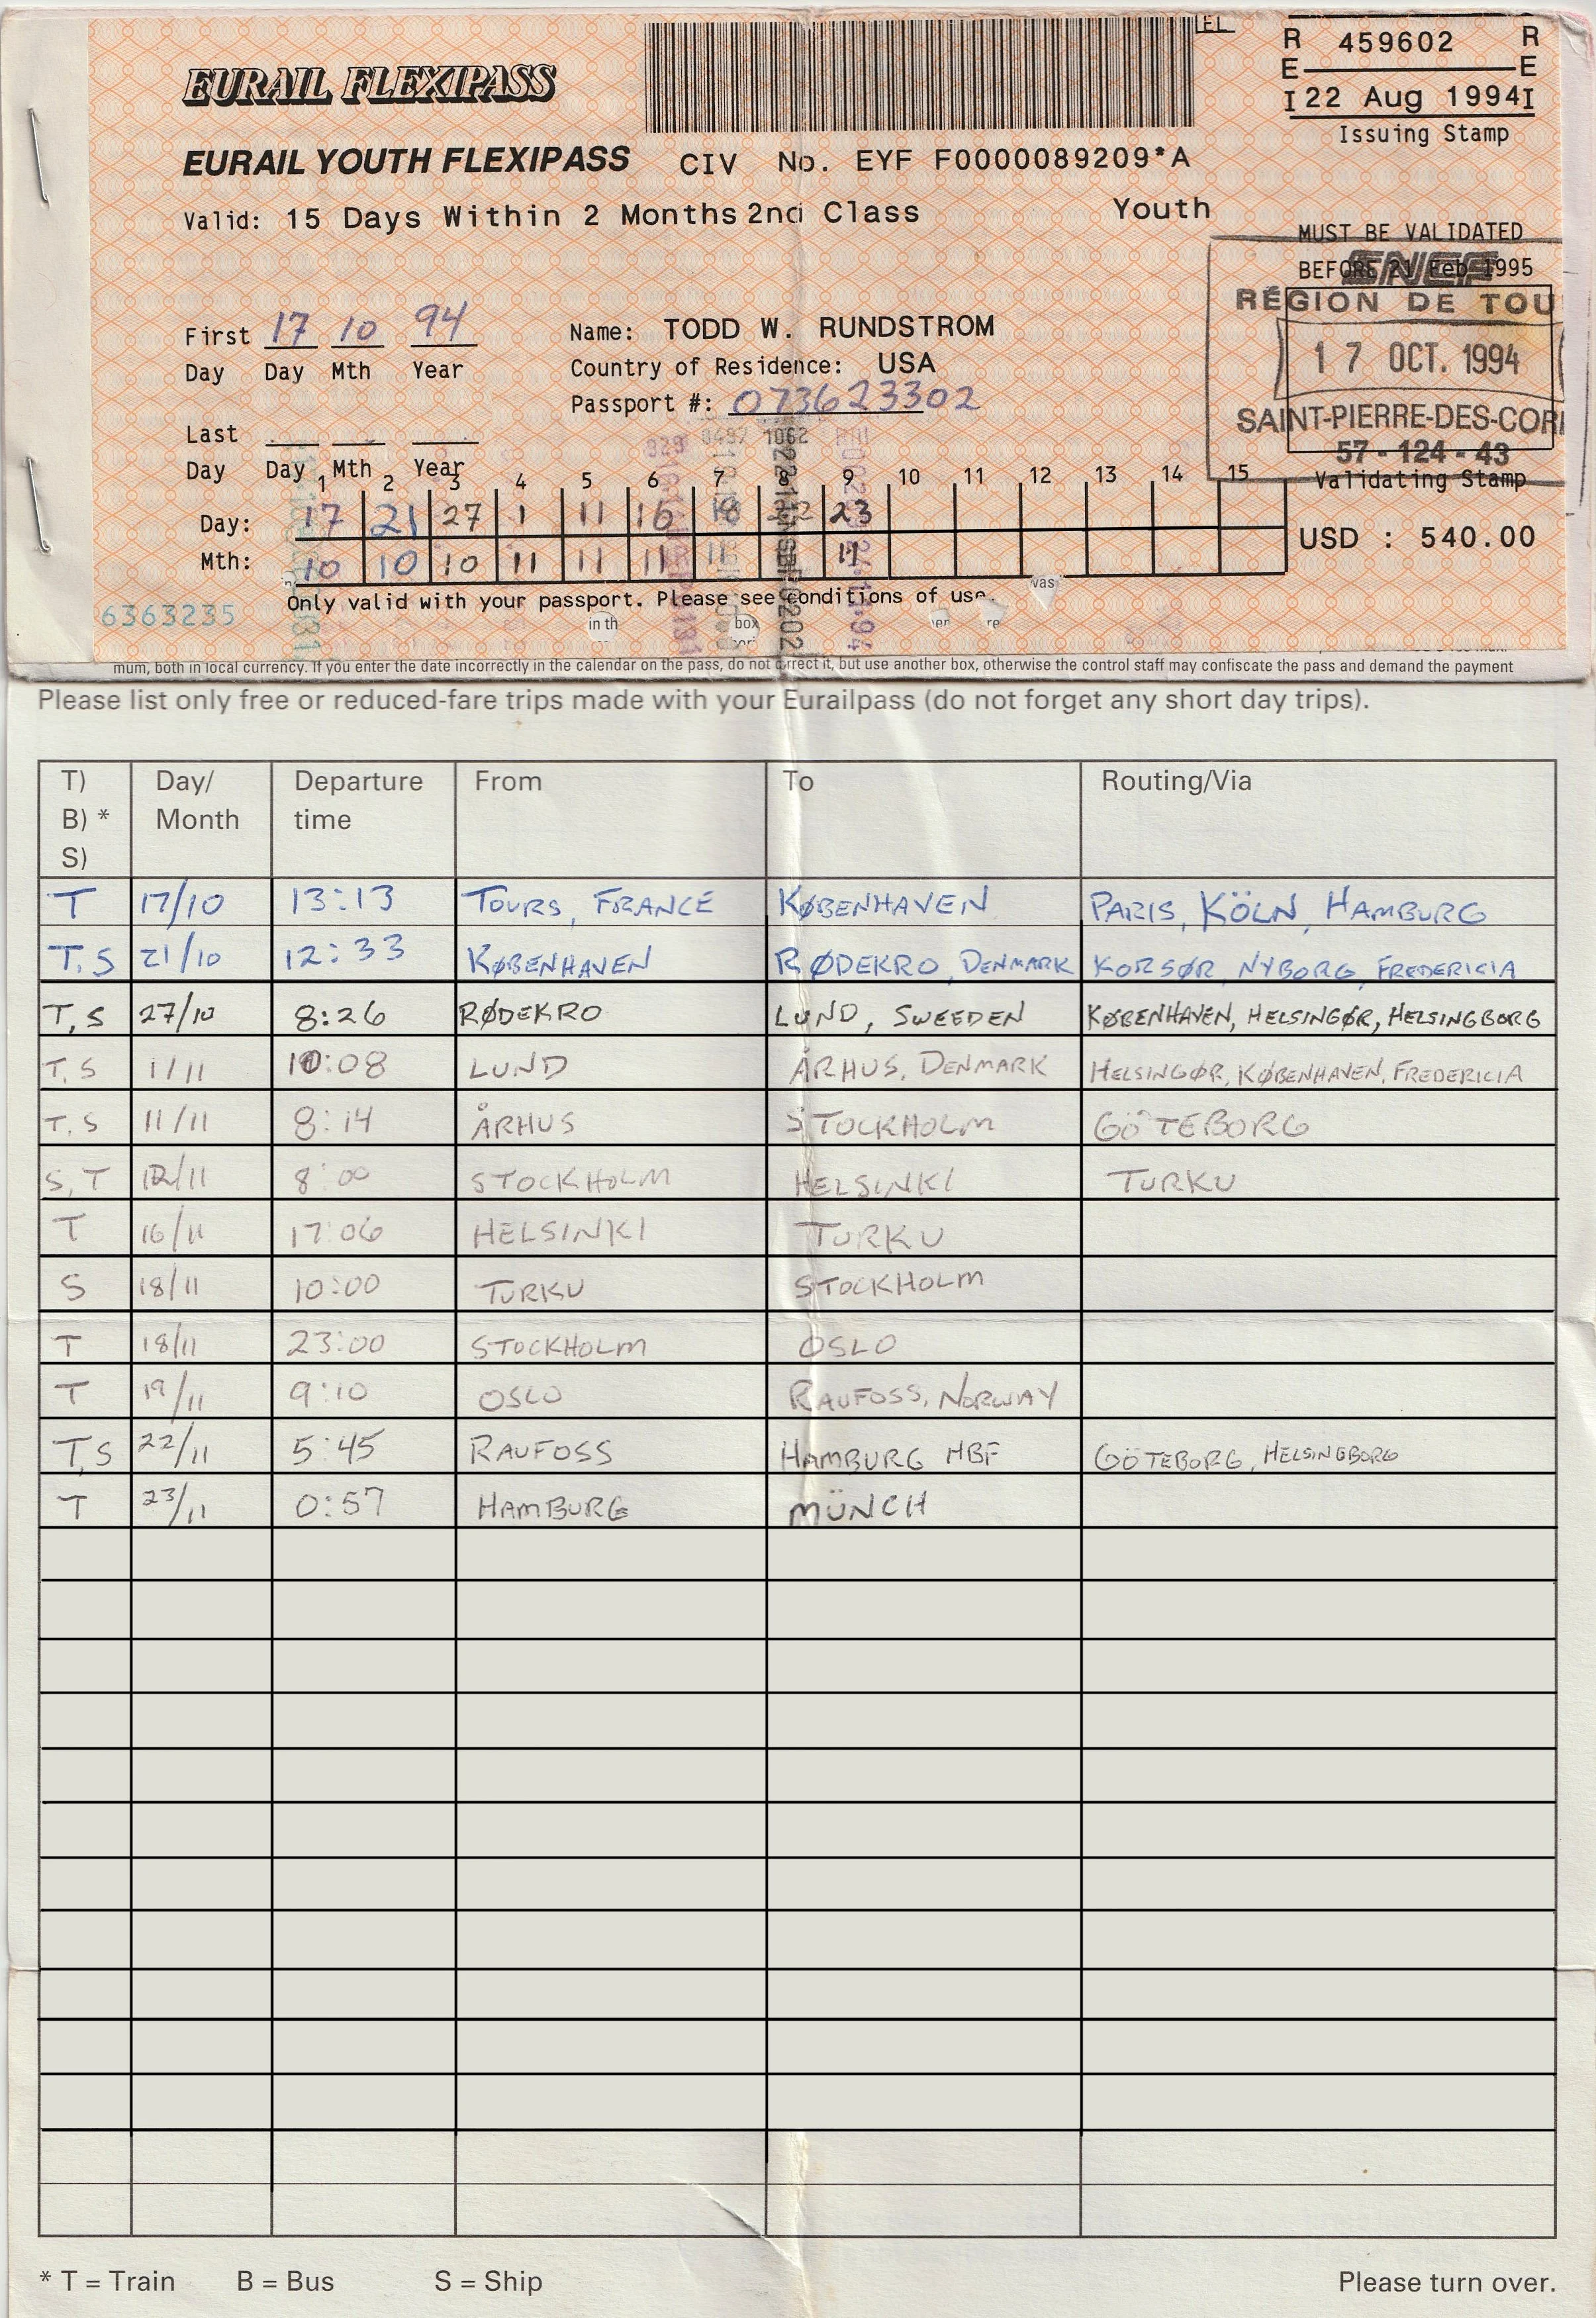 EURAIL FLEXIPASS
EL
R 459602 R
E E
I 22 Aug 1994 I
Issuing Stamp
EURAIL YOUTH FLEXIPASS CIV No. EYF F0000089209*A
Valid: 15 Days Within 2 Months 2nd Class Youth
MUST BE VALIDATED
BEFORE 21 Feb 1995
SNCF
RÉGION DE TOU
17 OCT. 1994
SAINT-PIERRE-DES-COR
57-124-43
Validating Stamp
First 17 10 94
Day Day Mth Year
Name: TODD W. RUNDSTROM
Country of Residence: USA
Passport #: 073623302
Last
Day Day Mth Year
0497 1062
1 2 3 4 5 6 7 8 9 10 11 12 13 14 15
Day: 17 21 27 1 11 16 18 22 23
Mth: 10 10 10 11 11 11 11 11
USD : 540.00
6363235
Only valid with your passport. Please see conditions of use.
was
in th box
mum, both in local currency. If you enter the date incorrectly in the calendar on the pass, do not correct it, but use another box, otherwise the control staff may confiscate the pass and demand the payment
Please list only free or reduced-fare trips made with your Eurailpass (do not forget any short day trips).
T) Day/ Departure From To Routing/Via
B) * Month time
S)
T 17/10 13:13 TOURS, FRANCE KØBENHAVEN PARIS, KÖLN, HAMBURG
T,S 21/10 12:33 KØBENHAVEN RØDEKRO, DENMARK KORSØR, NYBORG, FREDERICIA
T,S 27/10 8:26 RØDEKRO LUND, SWEEDEN KØBENHAVEN, HELSINGØR, HELSINGBORG
T,S 1/11 10:08 LUND ÅRHUS, DENMARK HELSINGØR, KØBENHAVEN, FREDERICIA
T,S 11/11 8:14 ÅRHUS STOCKHOLM GÖTEBORG
S,T 12/11 8:00 STOCKHOLM HELSINKI TURKU
T 16/11 17:06 HELSINKI TURKU
S 18/11 10:00 TURKU STOCKHOLM
T 18/11 23:00 STOCKHOLM OSLO
T 19/11 9:10 OSLO RAUFOSS, NORWAY
T,S 22/11 5:45 RAUFOSS HAMBURG HBF GÖTEBORG, HELSINGBORG
T 23/11 0:57 HAMBURG MÜNCH
* T = Train B = Bus S = Ship Please turn over.